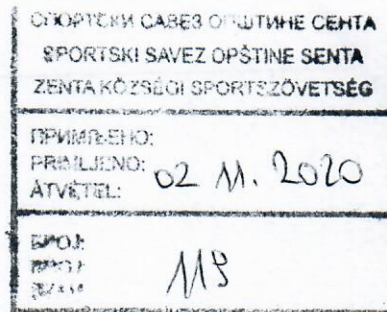 СПОРТСКИ САВЕЗ ОПШТИНЕ СЕНТА
SPORTSKI SAVEZ OPŠTINE SENTA
ZENTA KÖZSÉGI SPORTSZÖVETSÉG
ПРИМЉЕНО:
PRIMLJENO: 02 11. 2020
ÁTVÉTEL:
БРОЈ:
BROJ: 119